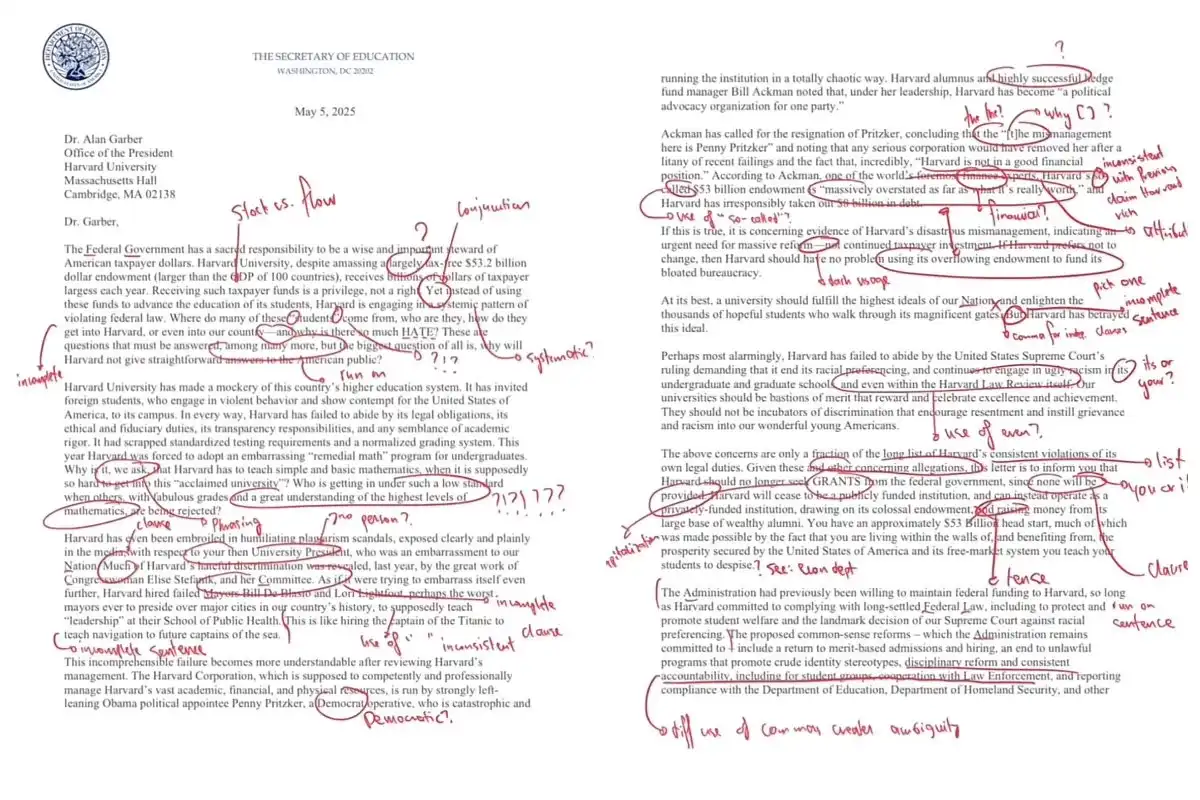 THE SECRETARY OF EDUCATION
WASHINGTON, DC 20202
May 5, 2025
Dr. Alan Garber
Office of the President
Harvard University
Massachusetts Hall
Cambridge, MA 02138
Stock vs. flow
Conjunction
Dr. Garber,
?
The Federal Government has a sacred responsibility to be a wise and important steward of
American taxpayer dollars. Harvard University, despite amassing a largely tax-free $53.2 billion
dollar endowment (larger than the GDP of 100 countries), receives billions of dollars of taxpayer
largess each year. Receiving such taxpayer funds is a privilege, not a right. Yet instead of using
these funds to advance the education of its students, Harvard is engaging in a systemic pattern of
violating federal law. Where do many of these students come from, who are they, how do they
get into Harvard, or even into our country—and why is there so much HATE? These are
questions that must be answered, among many more, but the biggest question of all is, why will
Harvard not give straightforward answers to the American public?
?!?
systematic?
incomplete
run on
Harvard University has made a mockery of this country's higher education system. It has invited
foreign students, who engage in violent behavior and show contempt for the United States of
America, to its campus. In every way, Harvard has failed to abide by its legal obligations, its
ethical and fiduciary duties, its transparency responsibilities, and any semblance of academic
rigor. It had scrapped standardized testing requirements and a normalized grading system. This
year Harvard was forced to adopt an embarrassing "remedial math" program for undergraduates.
Why is it, we ask, that Harvard has to teach simple and basic mathematics, when it is supposedly
so hard to get into this "acclaimed university"? Who is getting in under such a low standard
when others, with fabulous grades and a great understanding of the highest levels of
mathematics, are being rejected?
?!?!????
clause
Phrasing
no person?
Harvard has even been embroiled in humiliating plagiarism scandals, exposed clearly and plainly
in the media, with respect to your then University President, who was an embarrassment to our
Nation. Much of Harvard's hateful discrimination was revealed, last year, by the great work of
Congresswoman Elise Stefanik, and her Committee. As if it were trying to embarrass itself even
further, Harvard hired failed Mayors Bill De Blasio and Lori Lightfoot, perhaps the worst
mayors ever to preside over major cities in our country's history, to supposedly teach
"leadership" at their School of Public Health. This is like hiring the captain of the Titanic to
teach navigation to future captains of the sea.
incomplete
clause
use of " "
inconsistent
incomplete sentence
This incomprehensible failure becomes more understandable after reviewing Harvard's
management. The Harvard Corporation, which is supposed to competently and professionally
manage Harvard's vast academic, financial, and physical resources, is run by strongly left-
leaning Obama political appointee Penny Pritzker, a Democrat operative, who is catastrophic and
Democratic?
?
running the institution in a totally chaotic way. Harvard alumnus and highly successful hedge
fund manager Bill Ackman noted that, under her leadership, Harvard has become "a political
advocacy organization for one party."
the the?
why [ ] ?
Ackman has called for the resignation of Pritzker, concluding that the "[t]he mismanagement
here is Penny Pritzker" and noting that any serious corporation would have removed her after a
litany of recent failings and the fact that, incredibly, "Harvard is not in a good financial
position." According to Ackman, one of the world's foremost finance experts, Harvard's so-
called $53 billion endowment is "massively overstated as far as what it's really worth," and
Harvard has irresponsibly taken out $8 billion in debt.
inconsistent
with previous
claim Harvard
rich
use of "so-called"?
financial?
If this is true, it is concerning evidence of Harvard's disastrous mismanagement, indicating an
urgent need for massive reform—not continued taxpayer investment. If Harvard prefers not to
change, then Harvard should have no problem using its overflowing endowment to fund its
bloated bureaucracy.
dash usage
pick one
At its best, a university should fulfill the highest ideals of our Nation, and enlighten the
thousands of hopeful students who walk through its magnificent gates. But Harvard has betrayed
this ideal.
incomplete
sentence
comma for indep. clauses
Perhaps most alarmingly, Harvard has failed to abide by the United States Supreme Court's
ruling demanding that it end its racial preferencing, and continues to engage in ugly racism in its
undergraduate and graduate schools, and even within the Harvard Law Review itself. Our
universities should be bastions of merit that reward and celebrate excellence and achievement.
They should not be incubators of discrimination that encourage resentment and instill grievance
and racism into our wonderful young Americans.
its or
your?
use of even?
The above concerns are only a fraction of the long list of Harvard's consistent violations of its
own legal duties. Given these and other concerning allegations, this letter is to inform you that
Harvard should no longer seek GRANTS from the federal government, since none will be
provided. Harvard will cease to be a publicly funded institution, and can instead operate as a
privately-funded institution, drawing on its colossal endowment, and raising money from its
large base of wealthy alumni. You have an approximately $53 Billion head start, much of which
was made possible by the fact that you are living within the walls of, and benefiting from, the
prosperity secured by the United States of America and its free-market system you teach your
students to despise.
list
? see: econ dept
tense
clause
The Administration had previously been willing to maintain federal funding to Harvard, so long
as Harvard committed to complying with long-settled Federal Law, including to protect and
promote student welfare and the landmark decision of our Supreme Court against racial
preferencing. The proposed common-sense reforms – which the Administration remains
committed to – include a return to merit-based admissions and hiring, an end to unlawful
programs that promote crude identity stereotypes, disciplinary reform and consistent
accountability, including for student groups, cooperation with Law Enforcement, and reporting
compliance with the Department of Education, Department of Homeland Security, and other
run on
sentence
diff use of commas creates ambiguity